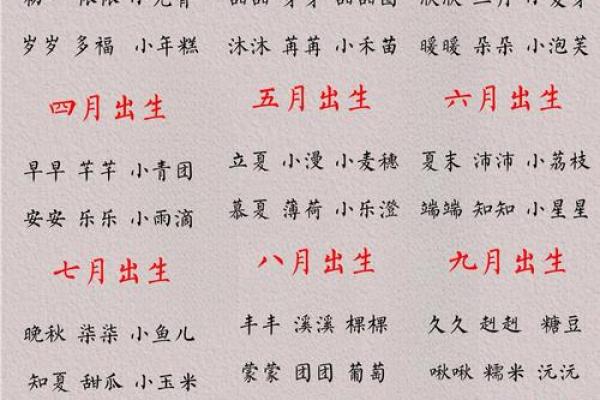 岁岁 多福 小年糕 沐沐 苒苒 小禾苗 暖暖 朵朵 小泡芙
四月出生 五月出生 六月出生
早早 芊芊 小青团 立夏 小漫 小麦穗 夏末 沛沛 小荔枝
安安 乐乐 小雨滴 慕夏 薄荷 小乐澄 端端 知知 小星星
七月出生 八月出生 九月出生
晚秋 柒柒 小鱼儿 丰丰 溪溪 棵棵 久久 赳赳 糖豆
知夏 甜瓜 小玉米 蒙蒙 团团 葡萄 啾啾 糯米 沅沅